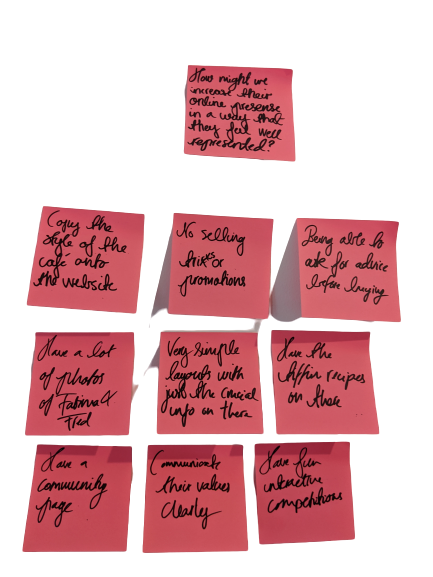 How might we
increase their
online presense
in a way that
they feel well
represented?
Copy the
style of the
café onto
the website
No selling
tricks or
promotions
Being able to
ask for advice
before buying
Have a lot
of photos
of Fatima &
Fred
Very simple
layouts with
just the crucial
info on there
Have the
tiffin recipes
on there
Have a
community
page
Communicate
their values
clearly
Have fun
interactive
competitions